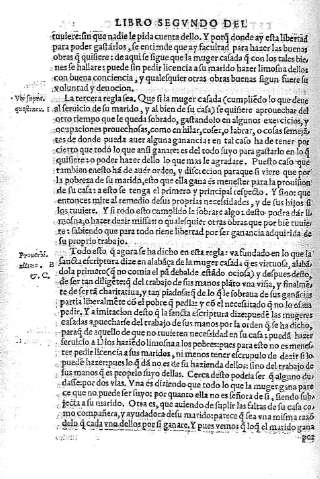 LIBRO SEGVNDO DEL
tuuiere: sin que nadie le pida cuenta dello. Y porq̃ donde ay esta libertad
para poder gastarlos, se entiende que ay facultad para hazer las buenas
obras q̃ quisiere: de aqui se sigue que la muger casada q̃ con los tales bie-
nes se hallare: puede sin pedir licencia a su marido hazer limosna dellos
con buena conciencia, y qualesquier otras obras buenas sigun fuere su
voluntad y deuocion.
La tercera regla sea. Que si la muger casada (cumpliẽdo lo que deue
al seruicio de su marido, y al bien de su casa) se quisiere aprouechar del
otro tiempo que le queda sobrado, gastandolo en algunos exercicios, y
ocupaciones prouechosas, como en hilar, coser, o labrar, o cosas semejã-
tes de donde pueda auer alguna ganancia: en tal caso ha de tener por
cierto que todo lo que ansi ganare es del todo suyo para gastarlo en lo q̃
quisiere: o poder hazer dello lo que mas le agradare. Puesto caso que
tambien en esto ha de auer orden, y discrecion para que si viere que por
la pobreza de su marido, esto que ella gana es menester para la prouisiõ
de su casa: a esto se tenga el primero y principal respecto. Y sino que
entonces mire al remedio de sus proprias necesidades, y de sus hijos si
los tuuiere. Y si todo esto cumplido le sobrare algo: desto podra dar li-
mosna, o hazer dezir missas: o qualesquier otras obras que por biẽ tuuie-
re: sabiendo que para todo tiene libertad por ser ganancia adquirida de
su proprio trabajo.
Todo esto q̃ agora se ha dicho en esta regla: va fundado en lo que la
sancta escriptura dize en alabãça de la muger casada q̃ es virtuosa, alabã-
dola primero (q̃ no comia el pã debalde estãdo ociosa) y despues desto,
de ser tan diligẽte: q̃ del trabajo de sus manos plãto vna viña, y finalmẽ-
te de ser tã charitatiua, y tan piadosa: q̃ de lo q̃ le sobraua de sus ganãcias
partia liberalmẽte cõ el pobre q̃ pedir y cõ el necesitado q̃ no lo osaua
pedir. Y a imitacion desto q̃ la sancta escriptura dize: puedẽ las mugeres
casadas aprouecharse del trabajo de sus manos por la orden q̃ se ha dicho,
para q̃ de aquello de que no tuuieren necessidad en su casa: puedã hazer
seruicio a Dios haziẽdo limosna a los pobres: pues para esto no es menes-
ter pedir licencia a sus maridos, ni menos tener escrupulo de dezir si lo
puedẽ hazer: pues lo q̃ dã no es de su hazienda dellos: sino del trabajo de
sus manos q̃ es proprio suyo dellas. Cerca desto podria ser q̃ alguno du-
dasse: por dos vias. Vna es diziendo que todo lo que la muger gana pare
ce que no puede ser suyo: por quanto ella no es señora de si, siendo sub-
jecta a su marido. Otra es, que auiendo de suplir las faltas de su casa co-
mo compañera, y ayudadora de su marido: parece q̃ sea vna misma razõ
delo q̃ cada vno dellos por si ganare. Y pues vemos q̃ lo q̃ el marido gana